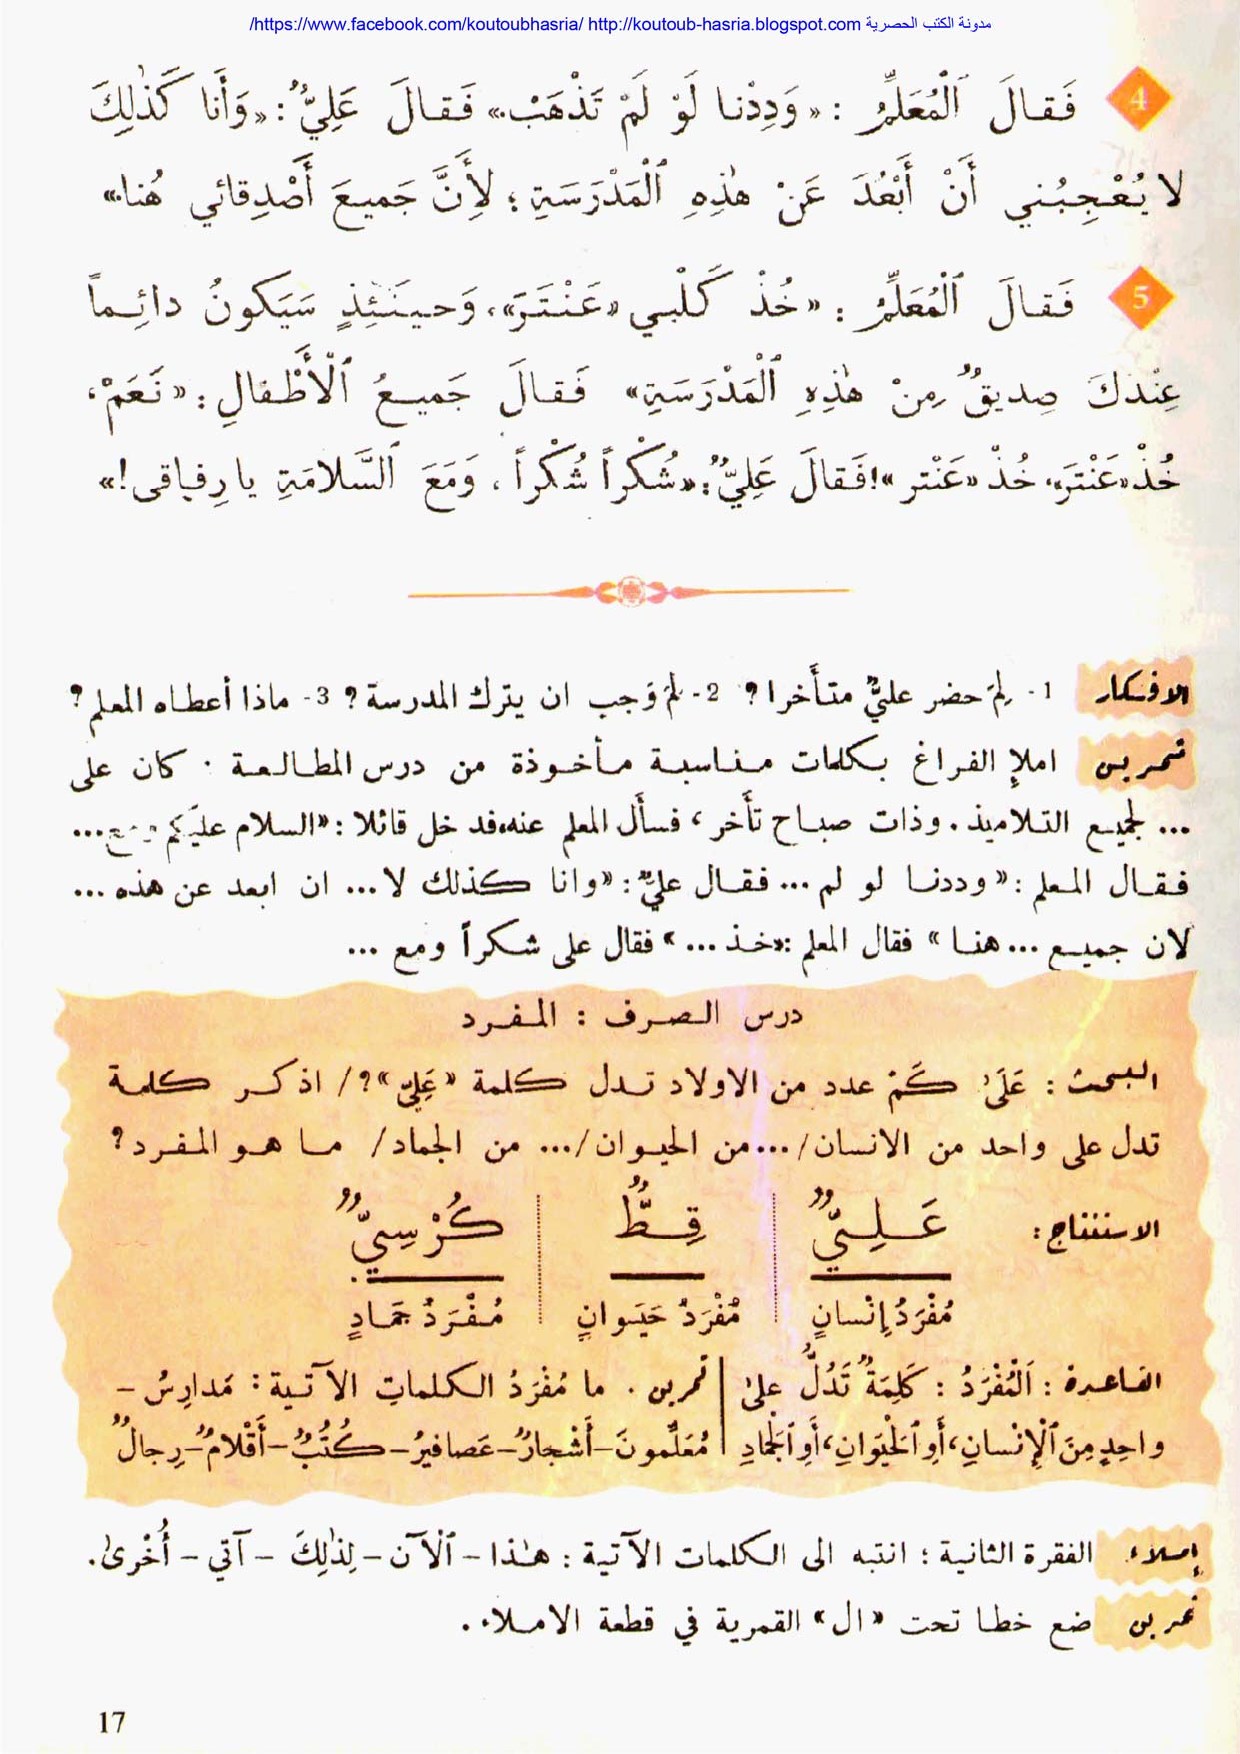 https://www.facebook.com/koutoubhasria/ http://koutoub-hasria.blogspot.com مدونة الكتب الحصرية/
4 فَقالَ ٱلْمُعَلِّمُ : «وَدِدْنا لَوْ لَمْ تَذْهَبْ.» فَقالَ عَلِيٌّ : «وَأَنا كَذٰلِكَ
لا يُعْجِبُني أَنْ أَبْعُدَ عَنْ هٰذِهِ ٱلْمَدْرَسَةِ ؛ لِأَنَّ جَميعَ أَصْدِقائي هُنا.»
5 فَقالَ ٱلْمُعَلِّمُ : «خُذْ كَلْبي «عَنْتَرَ»، وَحينَئِذٍ سَيَكونُ دائِماً
عِنْدَكَ صِديقٌ مِنْ هٰذِهِ ٱلْمَدْرَسَةِ» فَقالَ جَميعُ ٱلْأَطْفالِ : «نَعَمْ،
خُذْ «عَنْتَرَ»، خُذْ «عَنْتر»! فَقالَ عَلِيٌّ : «شُكْراً شُكْراً ، وَمَعَ ٱلسَّلامَةِ يا رِفاقى!»
الافكار 1 - لِمَ حضر عليٌّ متأَخرا ? 2 - لِمَ وَجب ان يترك المدرسة ? 3 - ماذا أعطاه المعلم ?
تمرين املإ الفراغ بكلمات مناسبة مأخوذة من درس المطالعة . كان على
... لجميع التلاميذ . وذات صباح تأَخر ، فسأَل المعلم عنه، فدخل قائلا : «السلام عليكم ...
فقال المعلم : «وددنا لو لم ... فقال عليٌّ : «وانا كذلك لا ... ان ابعد عن هذه ...
لان جميع ... هنا » فقال المعلم : «خذ ... » فقال على شكراً ومع ...
درس الصرف : المفرد
البحث : عَلَىٰ كَمْ عدد من الاولاد تدل كلمة «عَلِيّ» ? / اذكر كلمة
تدل على واحد من الانسان / ... من الحيوان / ... من الجماد / ما هو المفرد ?
الاستنتاج : عَلِيٌّ قِطٌّ كُرْسِيٌّ
مُفْرَدُ إِنْسانٍ مُفْرَدُ حَيَوانٍ مُفْرَدُ جَمادٍ
القاعدة : اَلْمُفْرَدُ : كَلِمَةٌ تَدُلُّ عَلىٰ
واحِدٍ مِنَ ٱلْإِنْسانِ، أَوِ ٱلْحَيَوانِ، أَوِ ٱلْجَمادِ
تمرين . ما مُفْرَدُ الكلماتِ الآتية : مَدارِسُ -
مُعَلِّمونَ - أَشْجارٌ - عَصافيرُ - كُتُبٌ - أَقْلامٌ - رِجالٌ
إملاء الفقرة الثانية ؛ انتبه الى الكلمات الآتية : هٰذا - ٱلْآن - لِذٰلِكَ - آتي - أُخْرىٰ.
تمرين ضع خطا تحت «ال» القمرية في قطعة الاملاء .
17